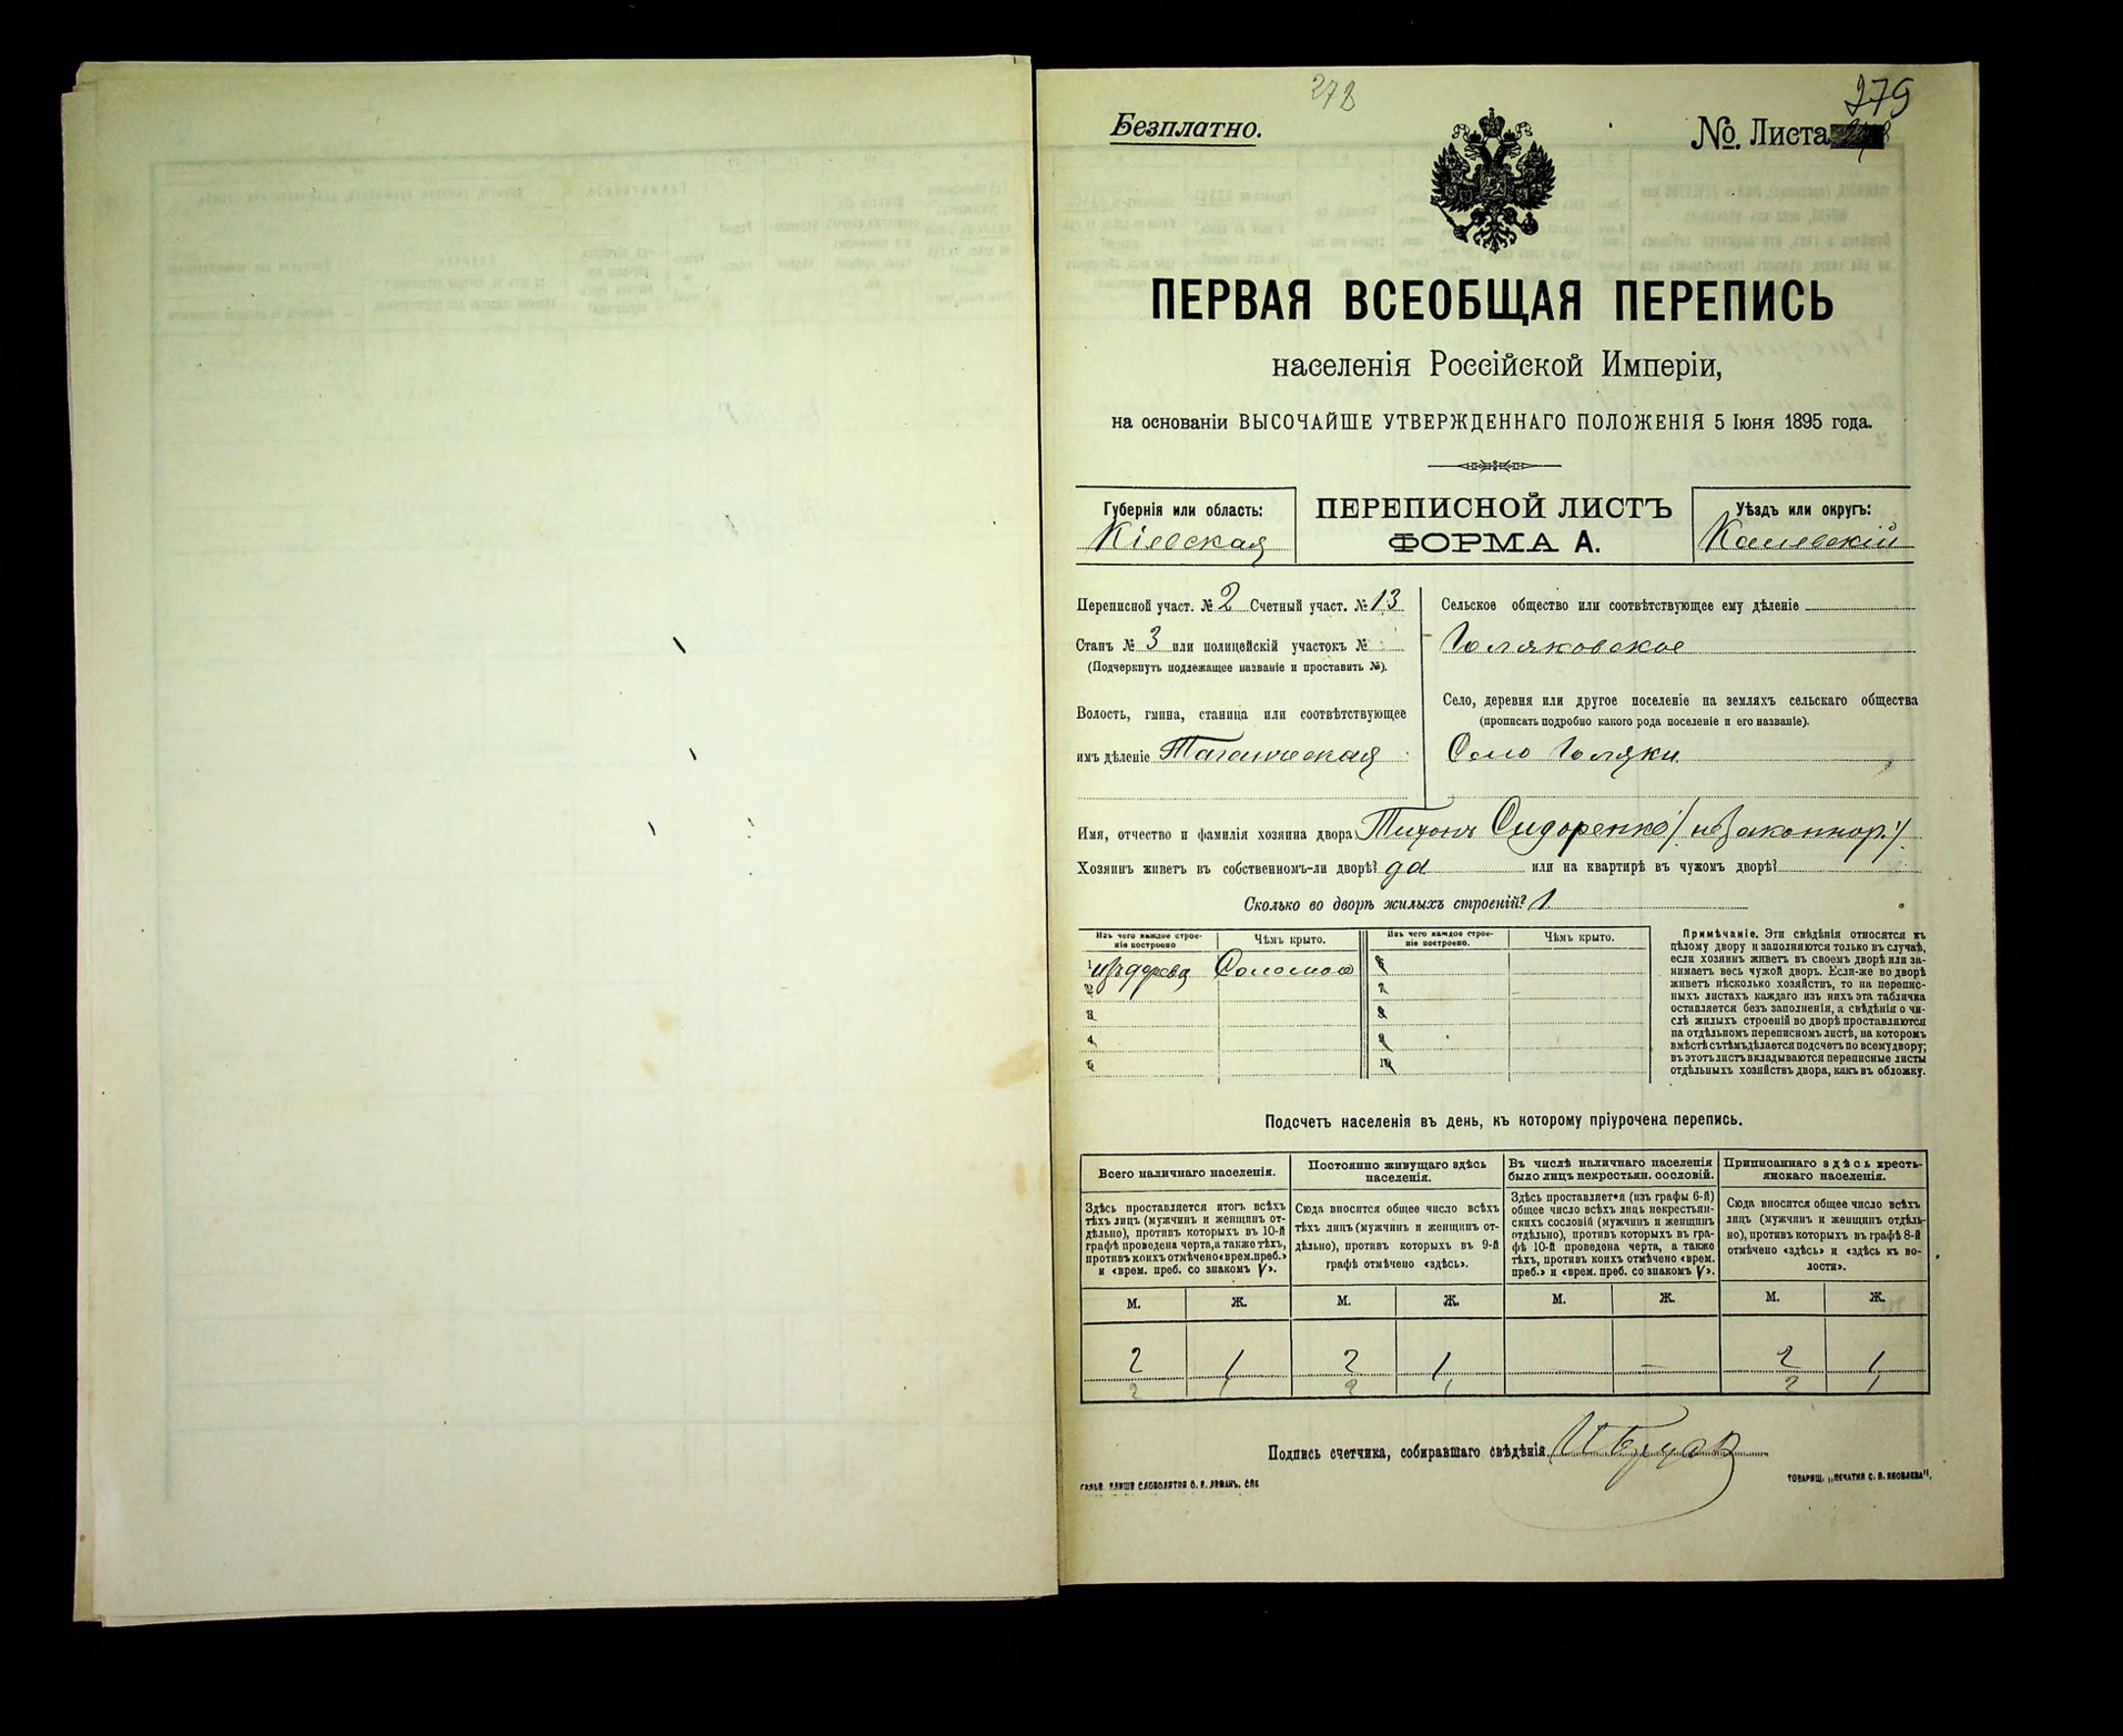 278
279
Безплатно.
№. Листа
ПЕРВАЯ ВСЕОБЩАЯ ПЕРЕПИСЬ
населенія Россійской Имперіи,
на основаніи ВЫСОЧАЙШЕ УТВЕРЖДЕННАГО ПОЛОЖЕНІЯ 5 Іюня 1895 года.
Губернія или область:
Кіевская
ПЕРЕПИСНОЙ ЛИСТЪ
ФОРМА А.
Уѣздъ или округъ:
Каневскій
Переписной участ. № 2 Счетный участ. № 13
Станъ № 3 или полицейскій участокъ №
(Подчеркнуть подлежащее названіе и проставить №).
Волость, гмина, станица или соотвѣтствующее
имъ дѣленіе Таганческая
Сельское общество или соотвѣтствующее ему дѣленіе
Голяковское
Село, деревня или другое поселеніе на земляхъ сельскаго общества
(прописать подробно какого рода поселеніе и его названіе).
Село Голяки
Имя, отчество и фамилія хозяина двора Тихонъ Сидоренко /незаконнор./
Хозяинъ живетъ въ собственномъ-ли дворѣ? да или на квартирѣ въ чужомъ дворѣ?
Сколько во дворѣ жилыхъ строеній? 1
Изъ чего каждое строе-
ніе построено
Чѣмъ крыто.
Изъ чего каждое строе-
ніе построено.
Чѣмъ крыто.
1 изъ дерева Соломою 6
2 7
3 8
4 9
5 10
Примѣчаніе. Эти свѣдѣнія относятся къ
цѣлому двору и заполняются только въ случаѣ,
если хозяинъ живетъ въ своемъ дворѣ или за-
нимаетъ весь чужой дворъ. Если-же во дворѣ
живетъ нѣсколько хозяйствъ, то на перепис-
ныхъ листахъ каждаго изъ нихъ эта табличка
оставляется безъ заполненія, а свѣдѣнія о чи-
слѣ жилыхъ строеній во дворѣ проставляются
на отдѣльномъ переписномъ листѣ, на которомъ
вмѣстѣ съ тѣмъ дѣлается подсчетъ по всему двору;
въ этотъ листъ вкладываются переписные листы
отдѣльныхъ хозяйствъ двора, какъ въ обложку.
Подсчетъ населенія въ день, къ которому пріурочена перепись.
Всего наличнаго населенія.
Здѣсь проставляется итогъ всѣхъ
тѣхъ лицъ (мужчинъ и женщинъ от-
дѣльно), противъ которыхъ въ 10-й
графѣ проведена черта, а также тѣхъ,
противъ коихъ отмѣчено «врем. преб.»
и «врем. преб. со знакомъ V».
Постоянно живущаго здѣсь
населенія.
Сюда вносится общее число всѣхъ
тѣхъ лицъ (мужчинъ и женщинъ от-
дѣльно), противъ которыхъ въ 9-й
графѣ отмѣчено «здѣсь».
Въ числѣ наличнаго населенія
было лицъ некрестьян. сословій.
Здѣсь проставляется (изъ графы 6-й)
общее число всѣхъ лицъ некрестьян-
скихъ сословій (мужчинъ и женщинъ
отдѣльно), противъ которыхъ въ гра-
фѣ 10-й проведена черта, а также
тѣхъ, противъ коихъ отмѣчено «врем.
преб.» и «врем. преб. со знакомъ V».
Приписаннаго здѣсь кресть-
янскаго населенія.
Сюда вносится общее число всѣхъ
лицъ (мужчинъ и женщинъ отдѣль-
но), противъ которыхъ въ графѣ 8-й
отмѣчено «здѣсь» и «здѣсь къ во-
лости».
М. Ж. М. Ж. М. Ж. М. Ж.
2 1 2 1 — 2 1
2 1 2 1 2 1
Подпись счетчика, собиравшаго свѣдѣнія
ТОВАРИЩ. „ПЕЧАТНЯ С. П. ЯКОВЛЕВА".